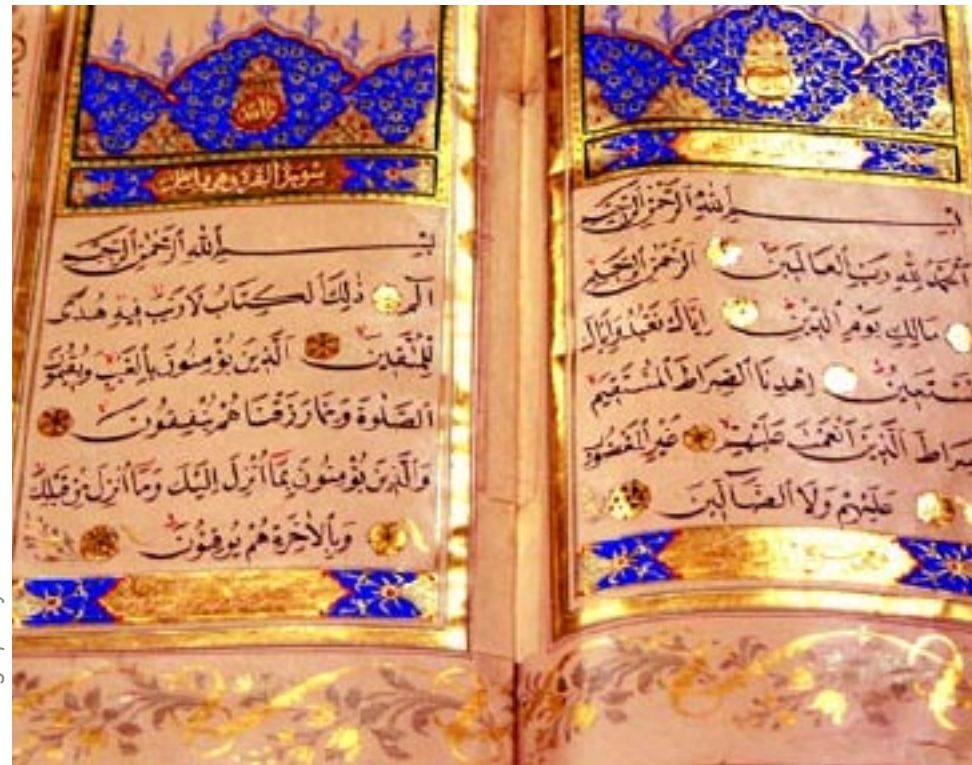 بِسْمِ ٱللهِ ٱلرَّحْمٰنِ ٱلرَّحِيمِ
اَلْحَمْدُ لِلّٰهِ رَبِّ ٱلْعَالَمِينَ الرَّحْمٰنِ ٱلرَّحِيمِ
مَالِكِ يَوْمِ ٱلدِّينِ اِيَّاكَ نَعْبُدُ وَاِيَّاكَ
نَسْتَعِينُ اِهْدِنَا ٱلصِّرَاطَ ٱلْمُسْتَقِيمَ
صِرَاطَ ٱلَّذِينَ اَنْعَمْتَ عَلَيْهِمْ غَيْرِ ٱلْمَغْضُوبِ
عَلَيْهِمْ وَلَا ٱلضَّٓالِّينَ
سورة البقرة وهي
بِسْمِ ٱللهِ ٱلرَّحْمٰنِ ٱلرَّحِيمِ
الٓمٓ ذٰلِكَ ٱلْكِتَابُ لَا رَيْبَ فِيهِ هُدًى
لِلْمُتَّقِينَ اَلَّذِينَ يُؤْمِنُونَ بِٱلْغَيْبِ وَيُقِيمُونَ
ٱلصَّلٰوةَ وَمِمَّا رَزَقْنَاهُمْ يُنْفِقُونَ
وَٱلَّذِينَ يُؤْمِنُونَ بِمَٓا اُنْزِلَ اِلَيْكَ وَمَٓا اُنْزِلَ مِنْ قَبْلِكَ
وَبِٱلْاٰخِرَةِ هُمْ يُوقِنُونَ